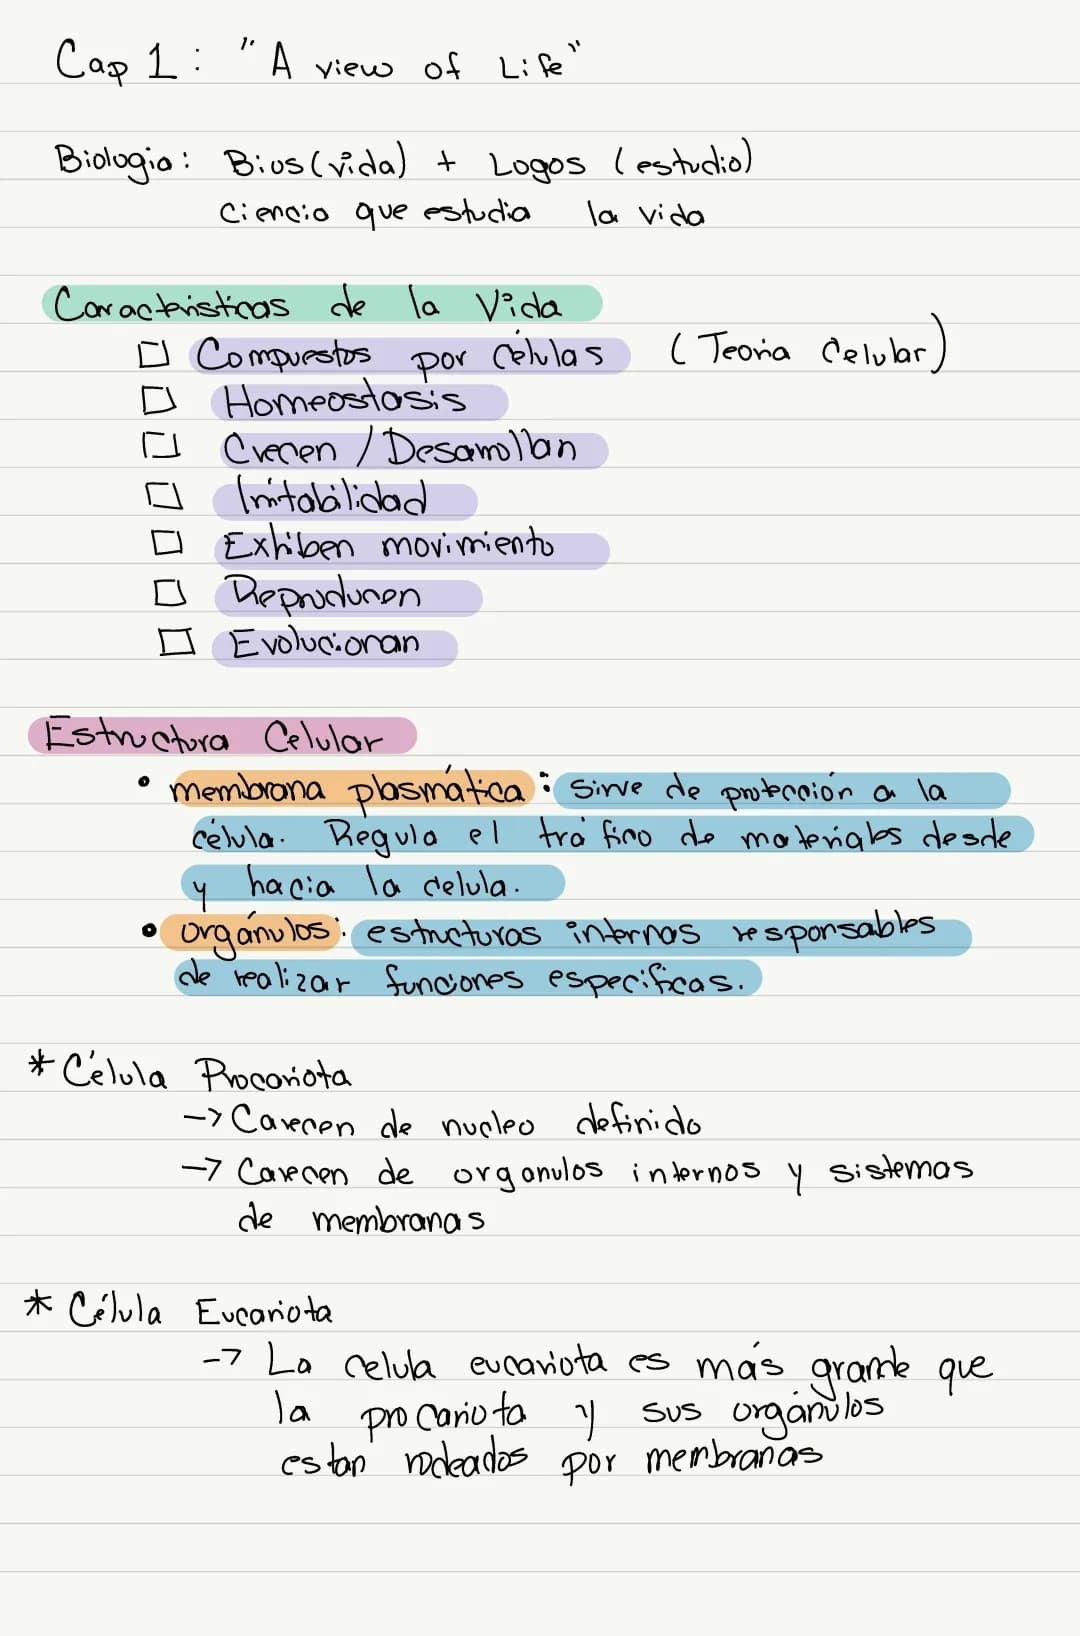 Cap 1: "A view of Life"
Biologia: Bios (vida) + Logos (estudio)
Ciencia que estudia la vida
Caracteristicas de la Vida
Compuestos por células (Teoria Celular)
Homeostasis
Crecen / Desarrollan
Irritabilidad
Exhiben movimiento
Reproducen
Evolucionan
Estructura Celular
• membrana plasmática: Sirve de protección a la
célula. Regula el tráfico de materiales desde
y hacia la celula.
• orgánulos: estructuras internas responsables
de realizar funciones especificas.
* Célula Procariota
-> Carecen de nucleo definido
-> Carecen de organulos internos y sistemas
de membranas
* Célula Eucariota
-> La celula eucariota es más grande que
la procariota y sus orgánulos
estan rodeados por membranas